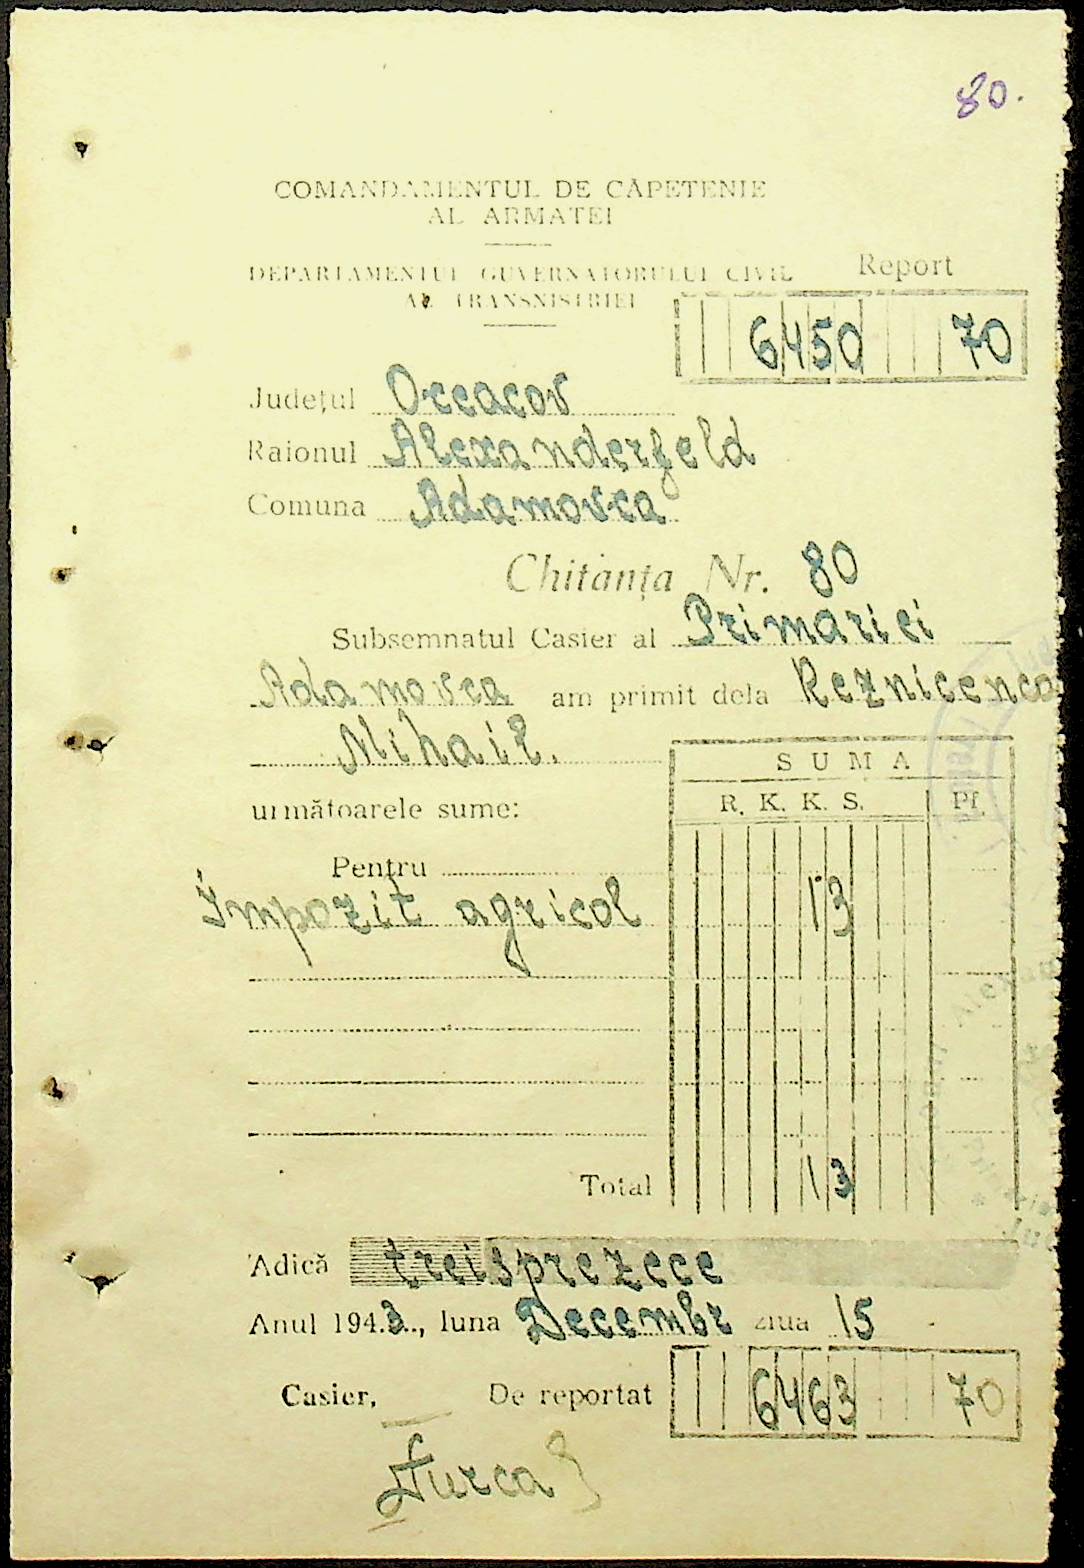 80.
COMANDAMENTUL DE CĂPETENIE
AL ARMATEI
DEPARTAMENTUL GUVERNATORULUI CIVIL
AL TRANSNISTRIEI
Report
6450 70
Județul Oceacov
Raionul Alexanderfeld
Comuna Adamovca
Chitanța Nr. 80
Subsemnatul Casier al Primariei
Adamovca am primit dela Reznicenco
Mihail.
următoarele sume:
SUMA
R. K. K. S. Pf.
Pentru
Impozit agricol 13
Total 13
Adică treisprezece
Anul 1943., luna Decembr ziua 15
Casier, De reportat 6463 70
Turca